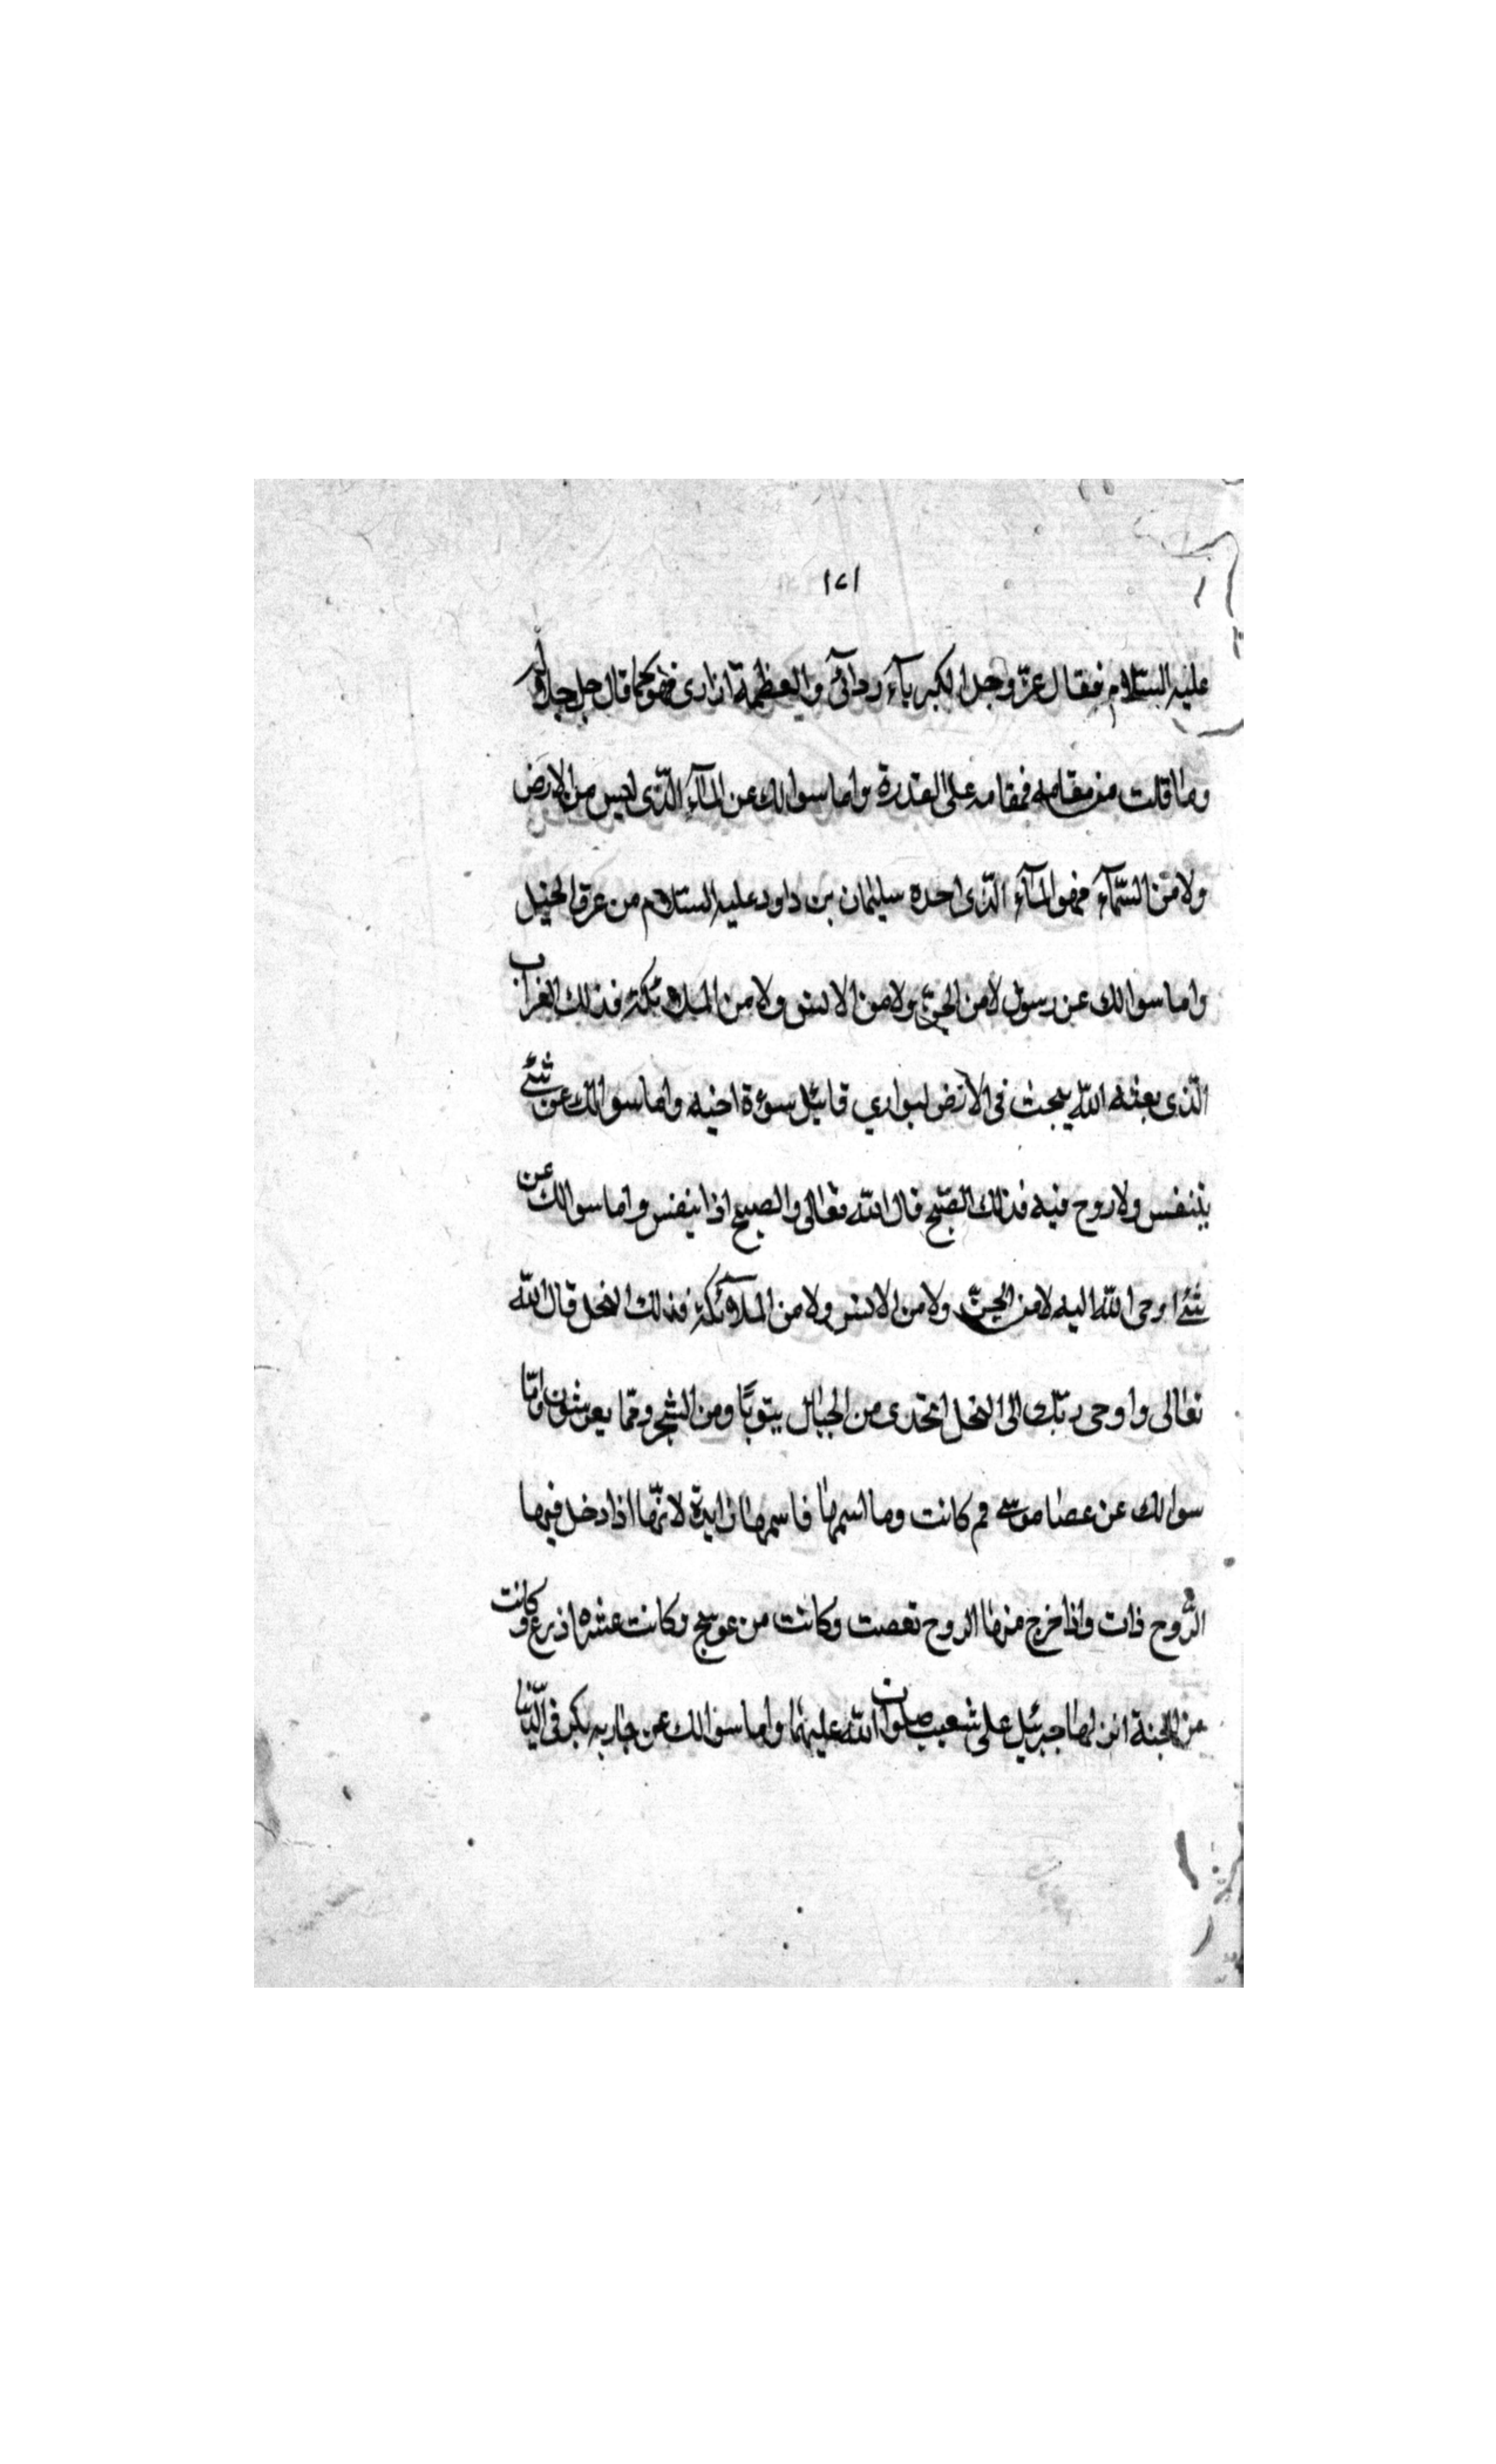 ١٤١
عليه السلام فقال عزّ وجل الكبريآء ردآئى والعظمة ازارى فهو كما قال جل جلاله
وما قلت من مقامه فمقامه على القدرة واما سوالك عن المآء الذّى ليس من الارض
ولا من السّمآء فهو المآء الذّى اخذه سليمان بن داود عليه السلام من عرق الخيل
واما سوالك عن رسول لا من الجنّ ولا من الانس ولا من الملائكة فذلك الغراب
الذّى بعثه اللّه يبحث فى الارض ليوارى قابيل سوءة اخيه واما سوالك عن شئ
يتنفس ولا روح فيه فذلك الصّبح قال اللّه تعالى والصبح اذا تنفس واما سوالك عن
شئ اوحى اللّه اليه لا من الجنّ ولا من الانس ولا من الملآئكة فذلك النحل قال اللّه
تعالى واوحى ربّك الى النحل اتخذى من الجبال بيوتًا ومن الشجر وممّا يعرشون وامّا
سوالك عن عصا موسى مم كانت وما اسمها فاسمها زايدة لانّها اذا دخل فيها
الرّوح زات واذا خرج منها الروح نقصت وكانت من عوسج وكانت عشرة اذرع وكانت
من الجنة انزلها جبرئيل على شعيب صلوات اللّه عليهما واما سوالك عن جارية بكر فى الدّنيا